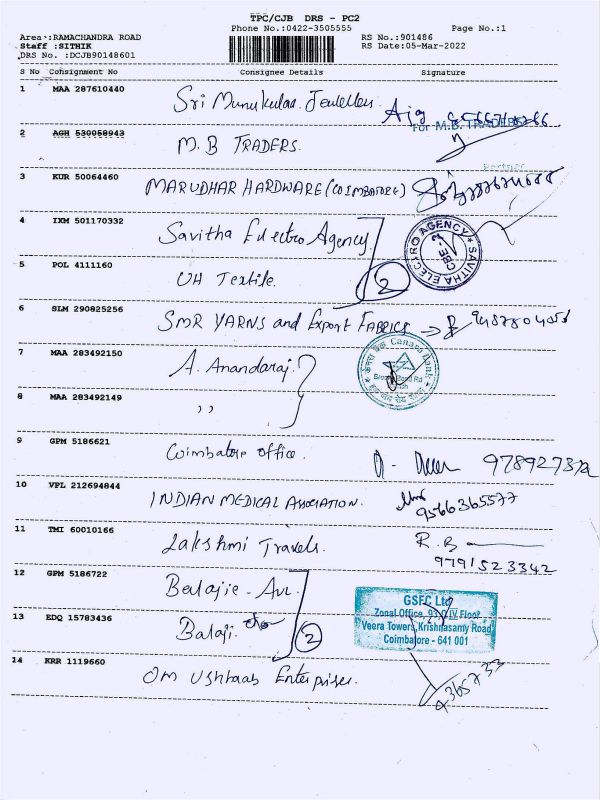 TPC/CJB DRS - PC2
Phone No.:0422-3505555 Page No.:1
Area :RAMACHANDRA ROAD RS No.:901486
Staff :SITHIK RS Date:05-Mar-2022
DRS No. :DCJB90148601
S No Cohsignment No Consignee Details Signature
1 MAA 287610440 Sri Munukulaa Jewellers
For M.B. TRADERS
2 AGH 530058943 M.B TRADERS.
Partner
3 KUR 50064460 MARUDHAR HARDWARE (COIMBATORE)
4 IXM 501170332 Savitha Electro Agency
SAVITHA ELECTRO AGENCY CBE-
5 POL 4111160 UH Textile. 2
6 SLM 290825256 SMR YARNS and Export FABRICS
Canara Bank
7 MAA 283492150 A. Anandaraj
8 MAA 283492149 ,,
9 GPM 5186621 Coimbatore office.
10 VPL 212694844 INDIAN MEDICAL ASSOCIATION. 9566365577
11 TMI 60010166 Lakshmi Travels. R.B
9791523342
12 GPM 5186722 Balajie - Avl.
GSFC Ltd
Zonal Office, 93 D IV Floor
13 EDQ 15783436 Balaji. 2
Veera Towers, Krishnasamy Road
Coimbatore - 641 001
14 KRR 1119660 Om Ushhaas Enterprises.